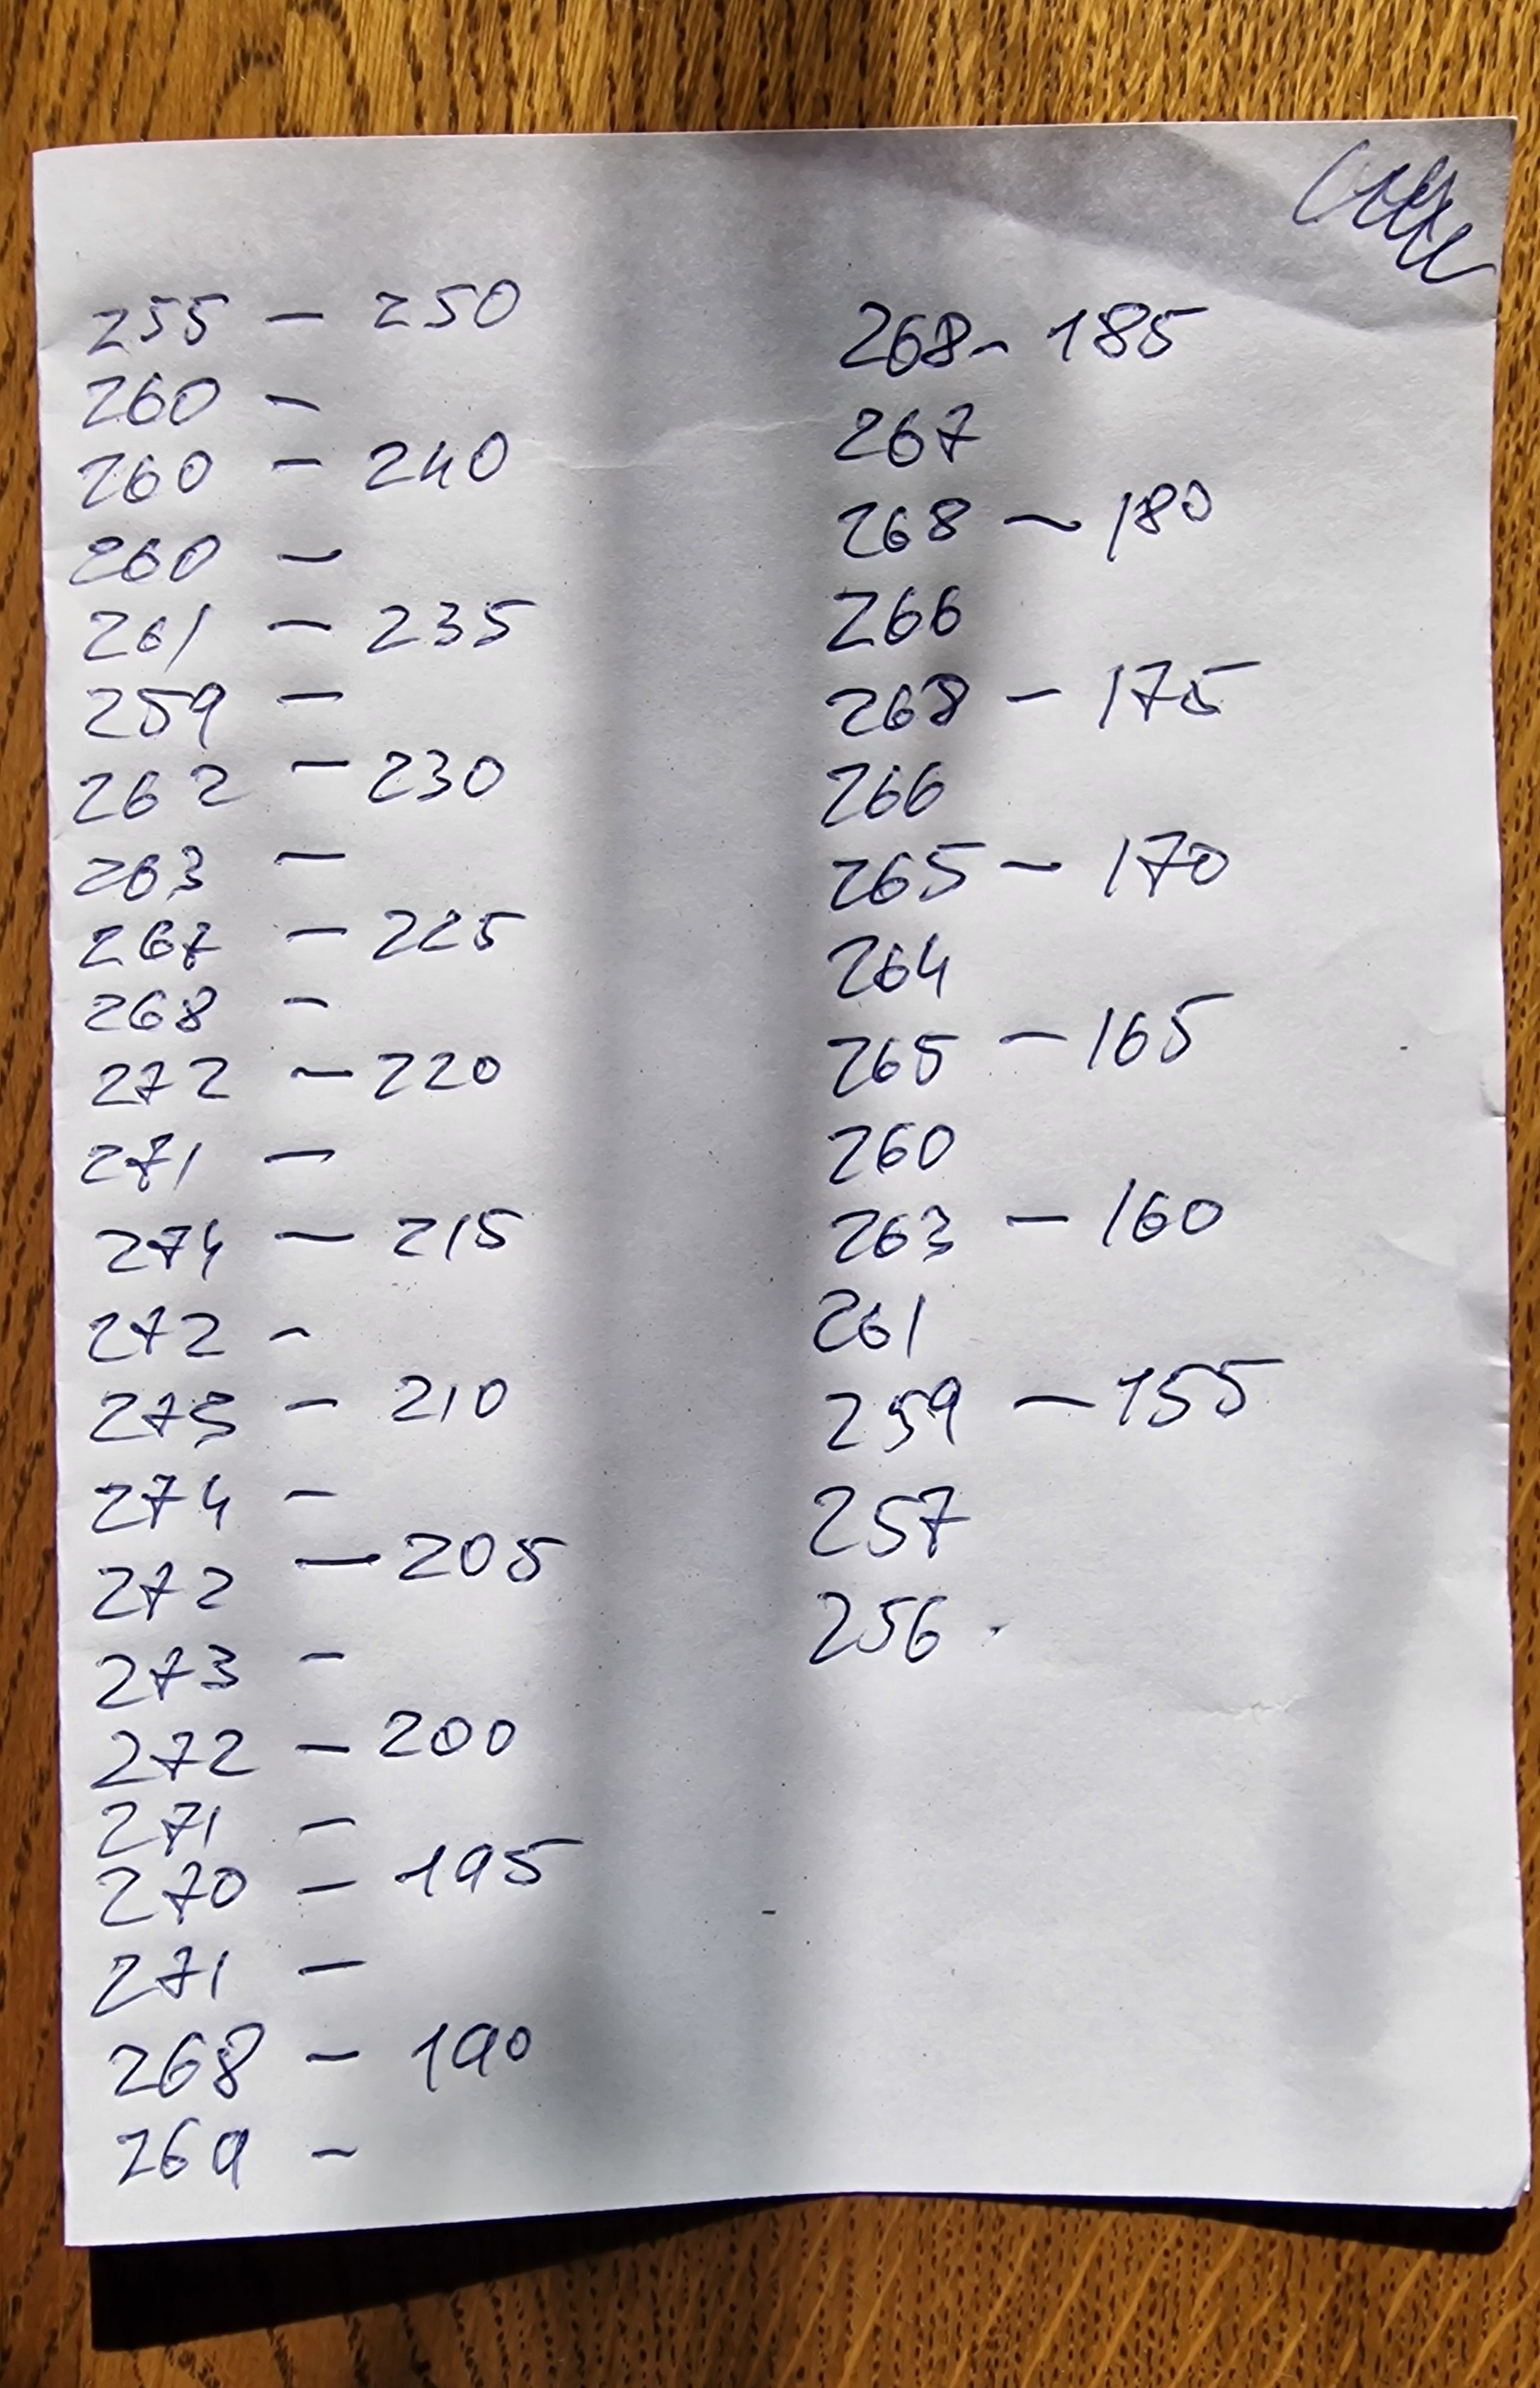 255 - 250
260 -
260 - 240
260 -
261 - 235
259 -
262 - 230
263 -
267 - 225
268 -
272 - 220
271 -
274 - 215
272 -
273 - 210
274 -
272 - 205
273 -
272 - 200
271 -
270 - 195
271 -
268 - 190
269 -
268 - 185
267
268 - 180
266
268 - 175
266
265 - 170
264
265 - 165
260
263 - 160
261
259 - 155
257
256